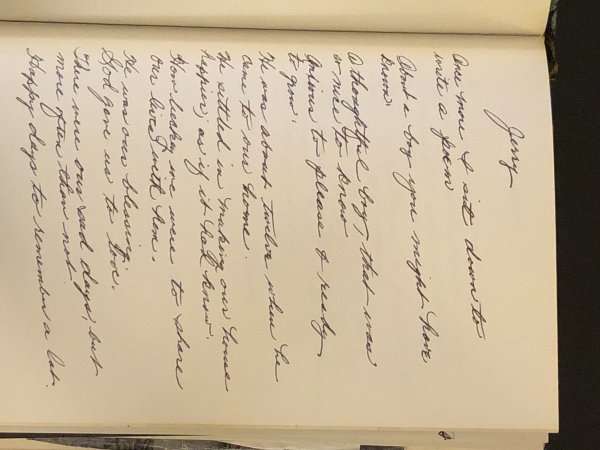 Jerry
Once more I sit down to
write a poem
About a boy you might have
known.
A thoughtful boy, that was
so nice to know
Anxious to please & ready
to grow.
He was about twelve when he
came to our home.
He settled in making our house
happier, as if it had known.
How lucky we were to share
our lives with him.
He was our blessing,
God gave us to love.
There were our sad days, but
more often than not
Happy days to remember a lot.